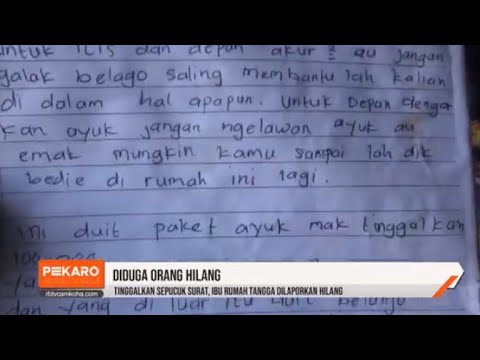 untuk dan depan akur 2 au jangan
galak belago saling membantu lah kalian
di dalam hal apapun. untuk Depan denga
kan ayuk jangan ngelawan ayuk au
emak mungkin kamu sampai lah dik
bedie di rumah ini lagi.
ini duit paket ayuk mak tinggalkan
100
PEKARO
rbtvcamkoha.com
DIDUGA ORANG HILANG
TINGGALKAN SEPUCUK SURAT, IBU RUMAH TANGGA DILAPORKAN HILANG
dan yang di luar itu duit